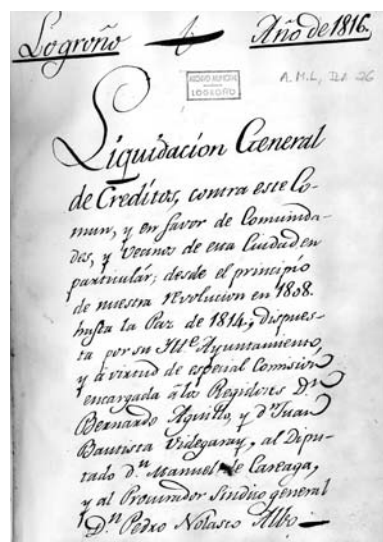 Logroño
Año de 1816.
ARCHIVO MUNICIPAL
LOGROÑO
A.M.L, IL 26
Liquidacion General
de Creditos, contra este Co-
mun, y en favor de Comunida-
des, y Vecinos de esta Ciudad en
particular; desde el principio
de nuestra revolucion en 1808.
hasta la Paz de 1814., dispues-
ta por su Ill.e Ayuntamiento,
y á virtud de especial Comision
encargada á los Regidores D.n
Bernardo Aguillo, y d.n Juan
Bautista Videgaray, al Dipu-
tado d.n Manuel de Careaga,
y al Procurador Sindico general
D.n Pedro Nolasco Albo